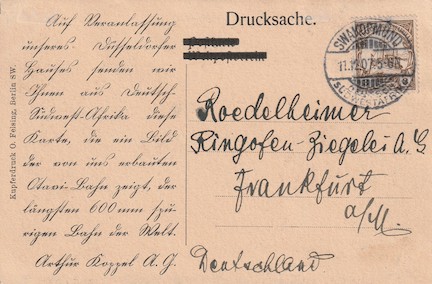 Drucksache.
Auf Veranlassung
unseres Düsseldorfer
Hauses senden wir
Ihnen aus Deutsch-
Südwest-Afrika diese
Karte, die ein Bild
der von uns erbauten
Otavi-Bahn zeigt, der
längsten 600 mm spu-
rigen Bahn der Welt.
Arthur Koppel A. G.
Kupferdruck O. Felsing, Berlin SW.
SWAKOPMUND
11.12.07. 5-6N.
Roedelheimer
Ringofen-Ziegelei A. G
Frankfurt
a/M.
Deutschland